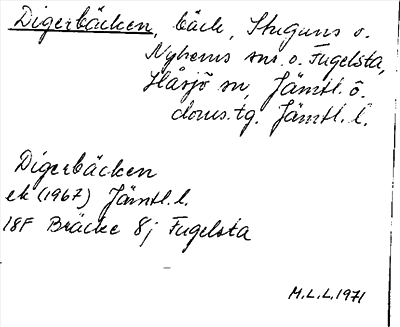 Digerbäcken, bäck, Stuguns o.
Nyhems snr. o. Fugelsta,
Håsjö sn, Jämtl. ö.
doms.tg. Jämtl. l.
Digerbäcken
ek (1967) Jämtl. l.
18F Bräcke 8j Fugelsta
M.L.L. 1971